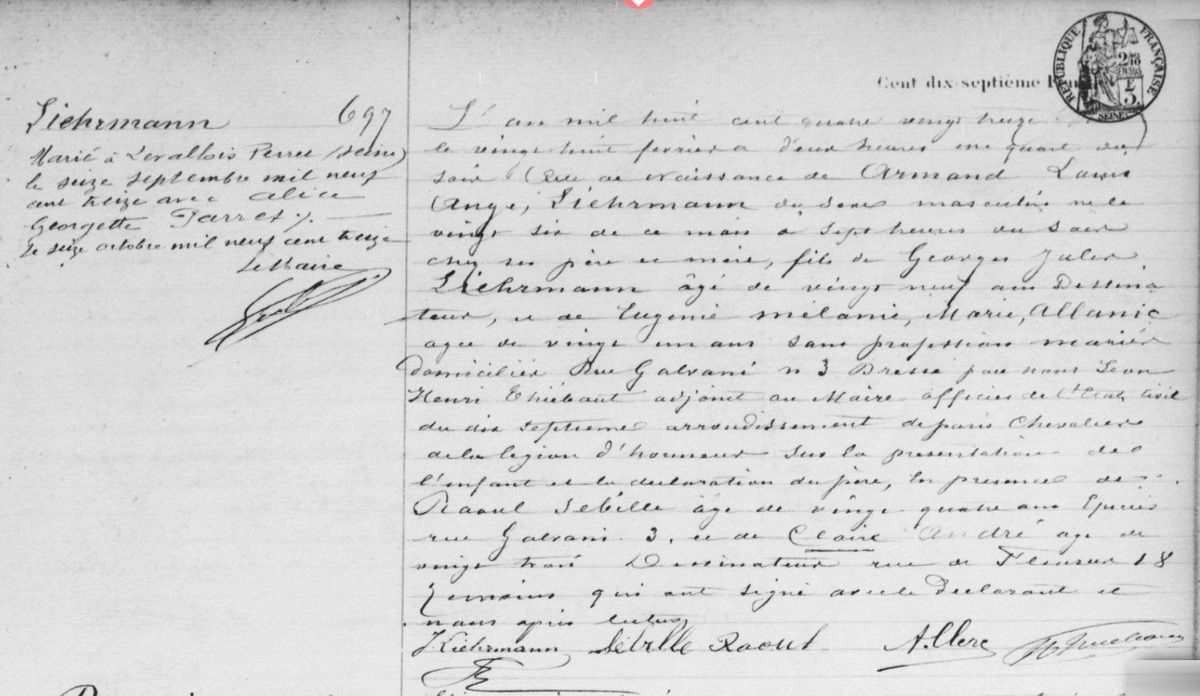 Cent dix-septième
RÉPUBLIQUE FRANÇAISE
SEINE
Liehrmann 697
Marié à Levallois Perret (Seine)
le seize septembre mil neuf
cent treize avec Alice
Georgette Parret /.
le seize octobre mil neuf cent treize
Le Maire
L'an mil huit cent quatre vingt treize
le vingt huit fevrier a deux heures un quart du
soir Acte de Naissance de Armand Louis
Ange, Liehrmann du sexe masculin ne le
vingt six de ce mois à sept heures du soir
chez ses père et mère, fils de Georges Jules
Liehrmann âgé de vingt neuf ans Dessina
teur, et de Eugenie mélanie, Marie, Allanic
agée de vingt un ans sans profession mariés
domiciliés Rue Galvani n 3 Dressé par nous Jean
Henri Thiébaut adjoint au Maire officier de l'Etat civil
du dix septieme arrondissement de paris Chevalier
de la legion d'honneur sur la presentation de
l'enfant et la declaration du père, En presence de
Raoul Sébille âgé de vingt quatre ans Epicier
rue Galvani 3, et de Claire André age de
vingt trois Dessinateur rue de 18
temoins qui ont signé avec le Declarant et
nous après lecture
Liehrmann Sébille Raoul A. Clerc